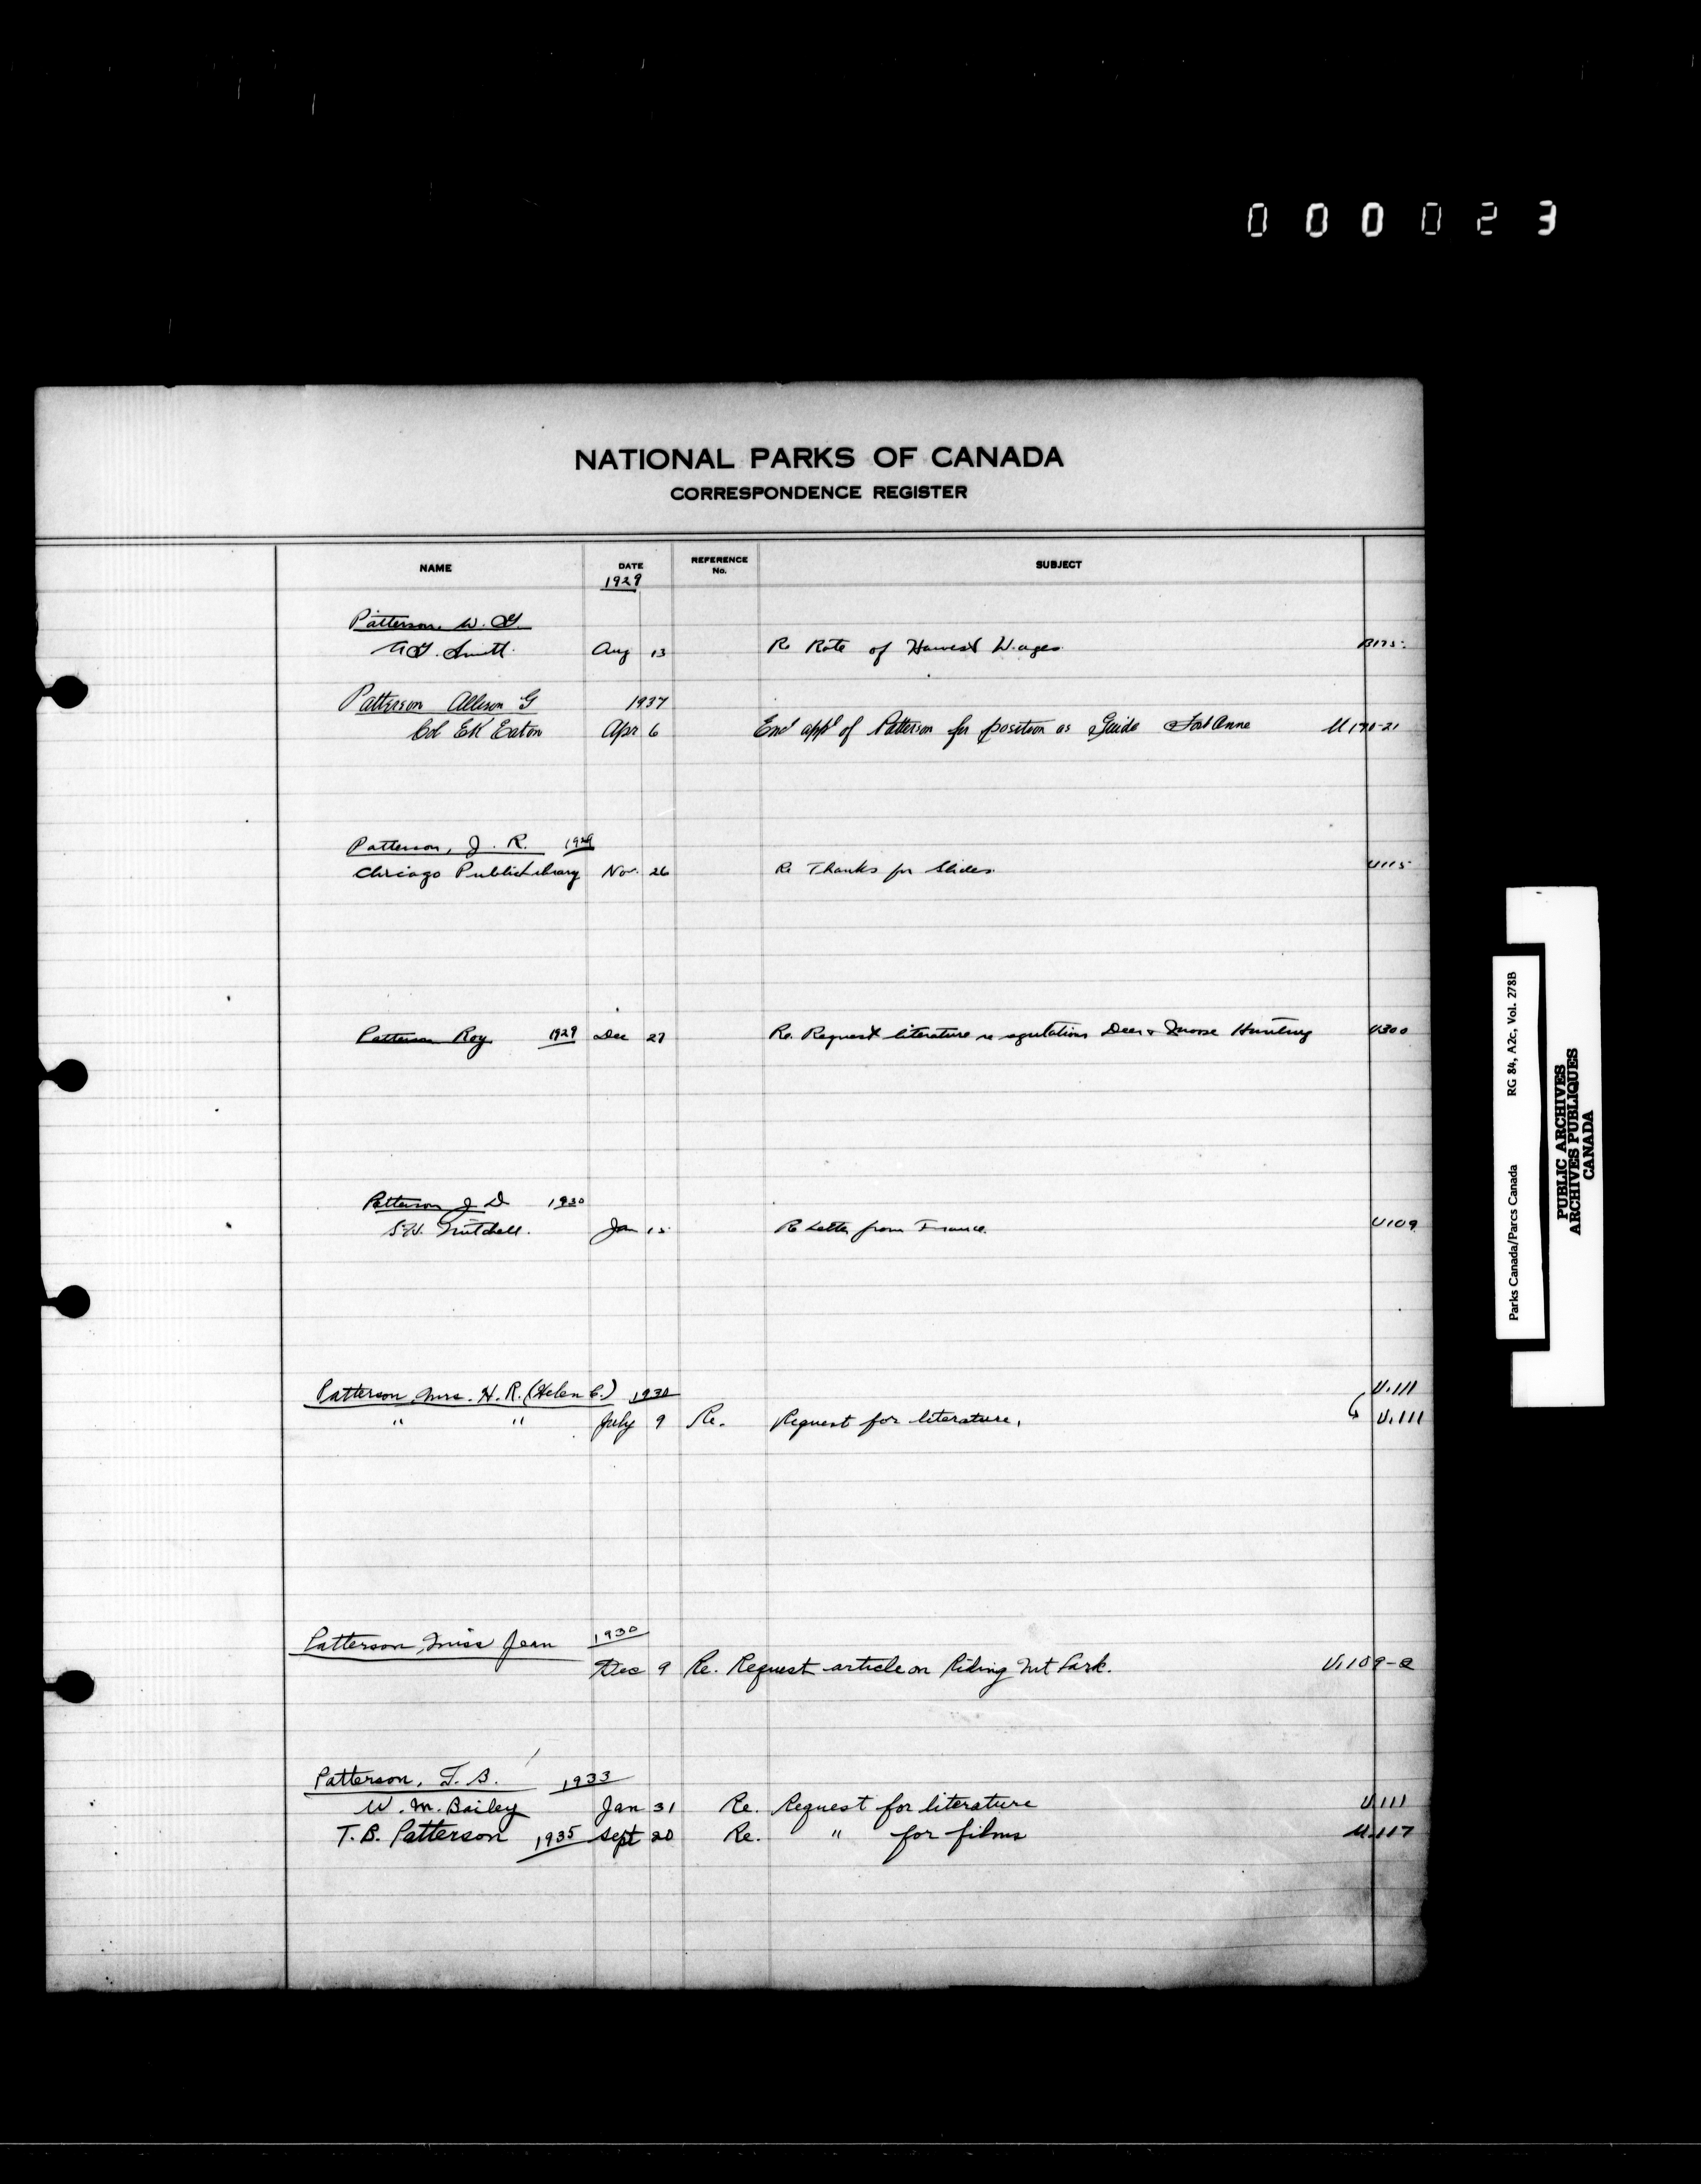 000023
NATIONAL PARKS OF CANADA
CORRESPONDENCE REGISTER
NAME DATE REFERENCE No. SUBJECT
1929
Patterson, W. G.
Smith. Aug 13 Re Rate of Harvest Wages. B175
Patterson Allison G 1937
Col EK Eaton Apr 6 End appl of Patterson for position as Guide Fort Anne U170-21
Patterson, J. R. 1929
Chicago Public Library Nov. 26 Re Thanks for Slides. U115
Patterson Roy 1929 Dec 27 Re. Request literature re regulations Deer & Moose Hunting U300
Patterson J D 1930
Mitchell. Jan 15 Re Letter from France. U109
Patterson Mrs. H. R. (Helen C.) 1930 U.111
" " July 9 Re. Request for literature. U.111
Patterson, Miss Jean 1930
Dec 9 Re. Request article on Riding Mt Park. U.109-2
Patterson, T. B. 1933
W. M. Bailey Jan 31 Re. Request for literature U.111
T. B. Patterson 1935 Sept 20 Re. " for films U.117
Parks Canada/Parcs Canada RG 84, A2c, Vol. 278B
PUBLIC ARCHIVES
ARCHIVES PUBLIQUES
CANADA